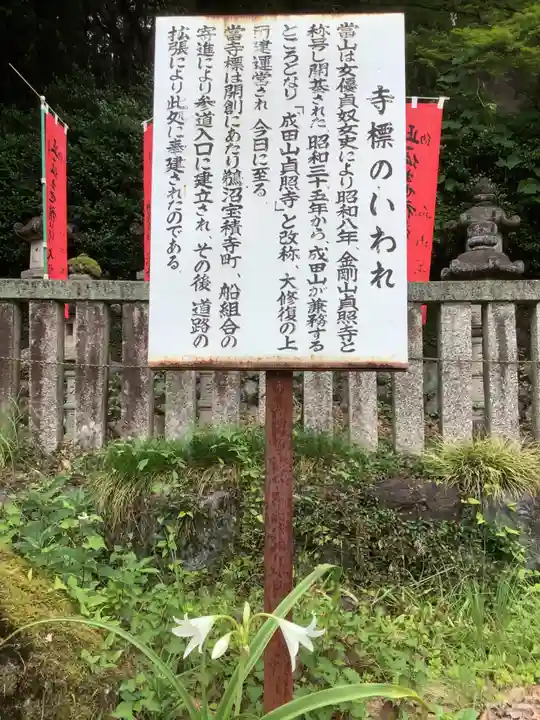 寺標のいわれ
當山は女優貞奴女史により昭和八年、金剛山貞照寺と
称号し開基された。昭和三十五年から、成田山が兼務する
ところとなり「成田山貞照寺」と改称、大修復の上
再建運営され今日に至る。
當寺標は開創にあたり鵜沼宝積寺町、船組合の
寄進により参道入口に建立され、その後、道路の
拡張により此処に墓建されたのである。